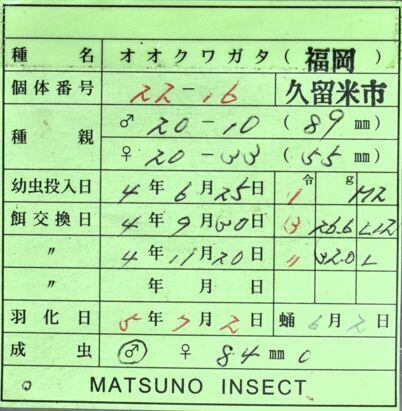 種 名 オオクワガタ(福岡)
個体番号 22-16 久留米市
種親 ♂ 20-10 (89mm)
♀ 20-33 (55mm)
幼虫投入日 4年6月25日 1令 g M2
餌交換日 4年9月30日 3 26.6 L12
〃 4年11月20日 〃 32.0 L
〃 年 月 日
羽化日 5年7月2日 蛹 6月2日
成虫 ♂ ♀ 84mm 0
MATSUNO INSECT